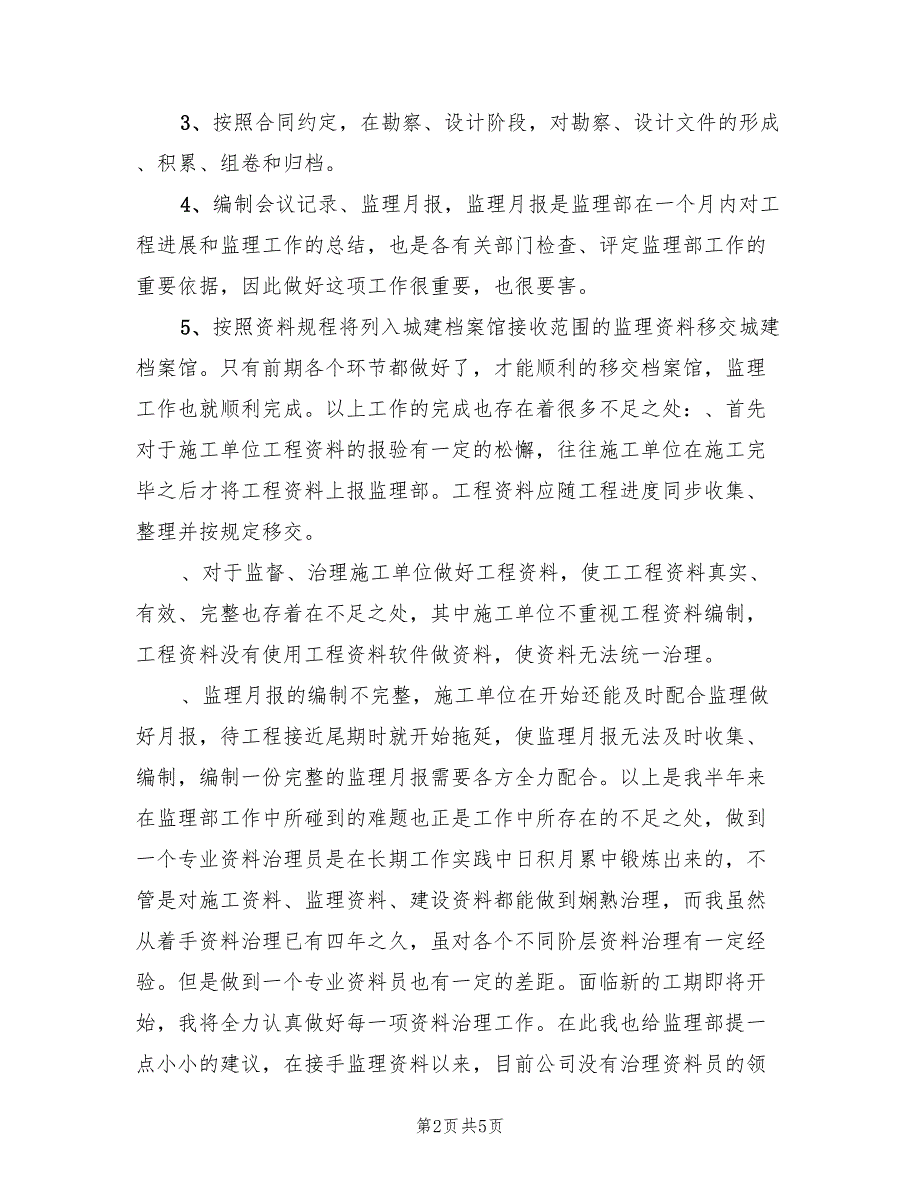 3、按照合同约定，在勘察、设计阶段，对勘察、设计文件的形成
、积累、组卷和归档。
4、编制会议记录、监理月报，监理月报是监理部在一个月内对工
程进展和监理工作的总结，也是各有关部门检查、评定监理部工作的
重要依据，因此做好这项工作很重要，也很要害。
5、按照资料规程将列入城建档案馆接收范围的监理资料移交城建
档案馆。只有前期各个环节都做好了，才能顺利的移交档案馆，监理
工作也就顺利完成。以上工作的完成也存在着很多不足之处：、首先
对于施工单位工程资料的报验有一定的松懈，往往施工单位在施工完
毕之后才将工程资料上报监理部。工程资料应随工程进度同步收集、
整理并按规定移交。
、对于监督、治理施工单位做好工程资料，使工工程资料真实、
有效、完整也存着在不足之处，其中施工单位不重视工程资料编制，
工程资料没有使用工程资料软件做资料，使资料无法统一治理。
、监理月报的编制不完整，施工单位在开始还能及时配合监理做
好月报，待工程接近尾期时就开始拖延，使监理月报无法及时收集、
编制，编制一份完整的监理月报需要各方全力配合。以上是我半年来
在监理部工作中所碰到的难题也正是工作中所存在的不足之处，做到
一个专业资料治理员是在长期工作实践中日积月累中锻炼出来的，不
管是对施工资料、监理资料、建设资料都能做到娴熟治理，而我虽然
从着手资料治理已有四年之久，虽对各个不同阶层资料治理有一定经
验。但是做到一个专业资料员也有一定的差距。面临新的工期即将开
始，我将全力认真做好每一项资料治理工作。在此我也给监理部提一
点小小的建议，在接手监理资料以来，目前公司没有治理资料员的领
第2页共5页